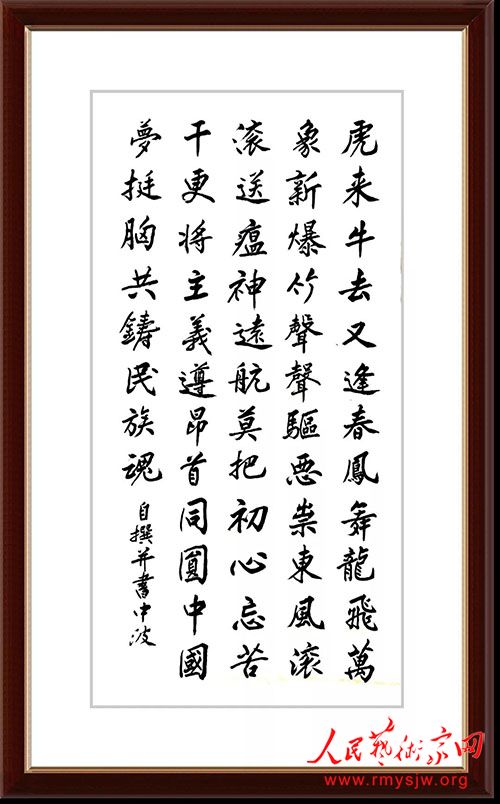 虎来牛去又逢春鳳舞龍飛萬
象新爆竹聲聲驅惡祟東風滾
滚送瘟神遠航莫把初心忘苦
干更将主義遵昂首同圓中國
夢挺胸共鑄民族魂
自撰并書中波
人民藝術家网
www.rmysjw.org